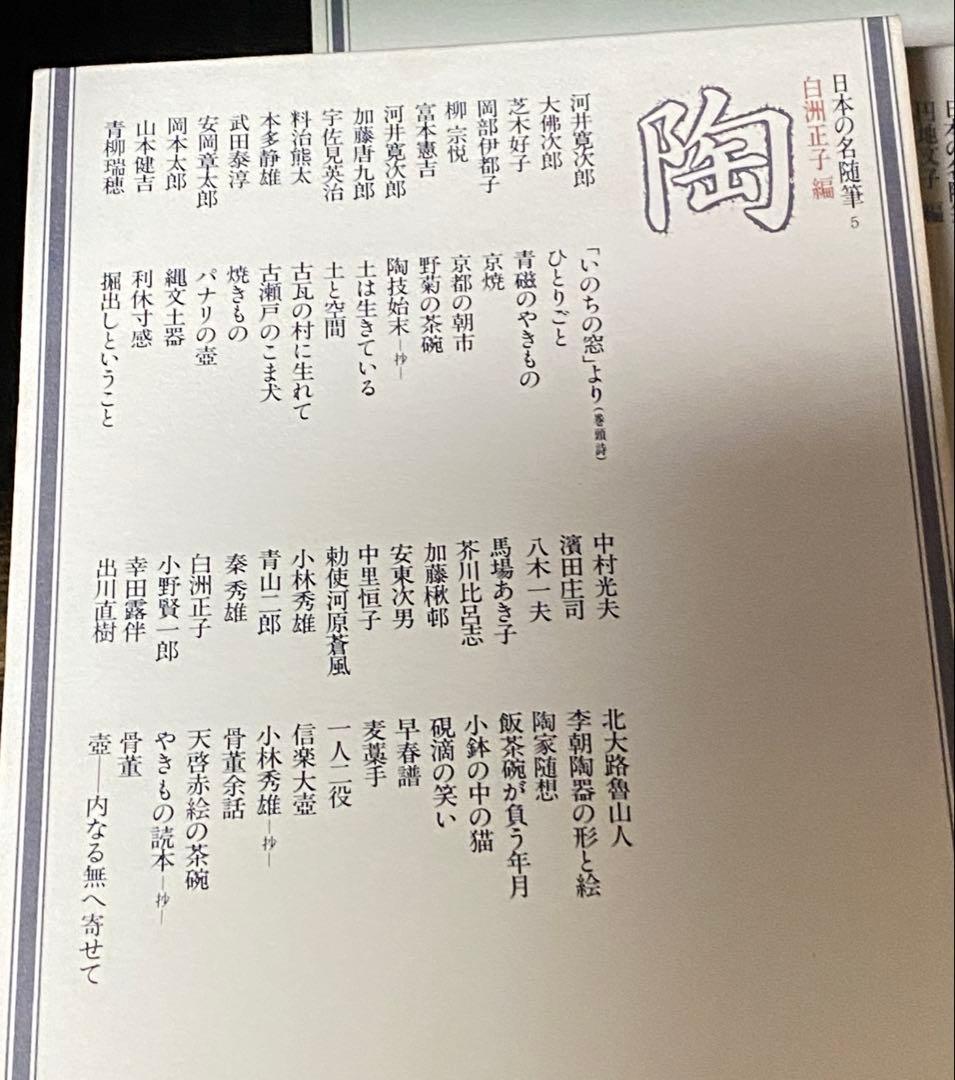 日本の名随筆 5
白洲正子 編
陶
河井寛次郎 「いのちの窓」より（巻頭詩）
大佛次郎 ひとりごと
芝木好子 青磁のやきもの
岡部伊都子 京焼
柳 宗悦 京都の朝市
富本憲吉 野菊の茶碗
河井寛次郎 陶技始末―抄―
加藤唐九郎 土は生きている
宇佐見英治 土と空間
料治熊太 古瓦の村に生れて
本多静雄 古瀬戸のこま犬
武田泰淳 焼きもの
安岡章太郎 パナリの壺
岡本太郎 縄文土器
山本健吉 利休寸感
青柳瑞穂 掘出しということ
中村光夫 北大路魯山人
濱田庄司 李朝陶器の形と絵
八木一夫 陶家随想
馬場あき子 飯茶碗が負う年月
芥川比呂志 小鉢の中の猫
加藤楸邨 硯滴の笑い
安東次男 早春譜
中里恒子 麦藁手
勅使河原蒼風 一人二役
小林秀雄 信楽大壺
青山二郎 小林秀雄―抄―
秦 秀雄 骨董余話
白洲正子 天啓赤絵の茶碗
小野賢一郎 やきもの読本―抄―
幸田露伴 骨董
出川直樹 壺――内なる無へ寄せて